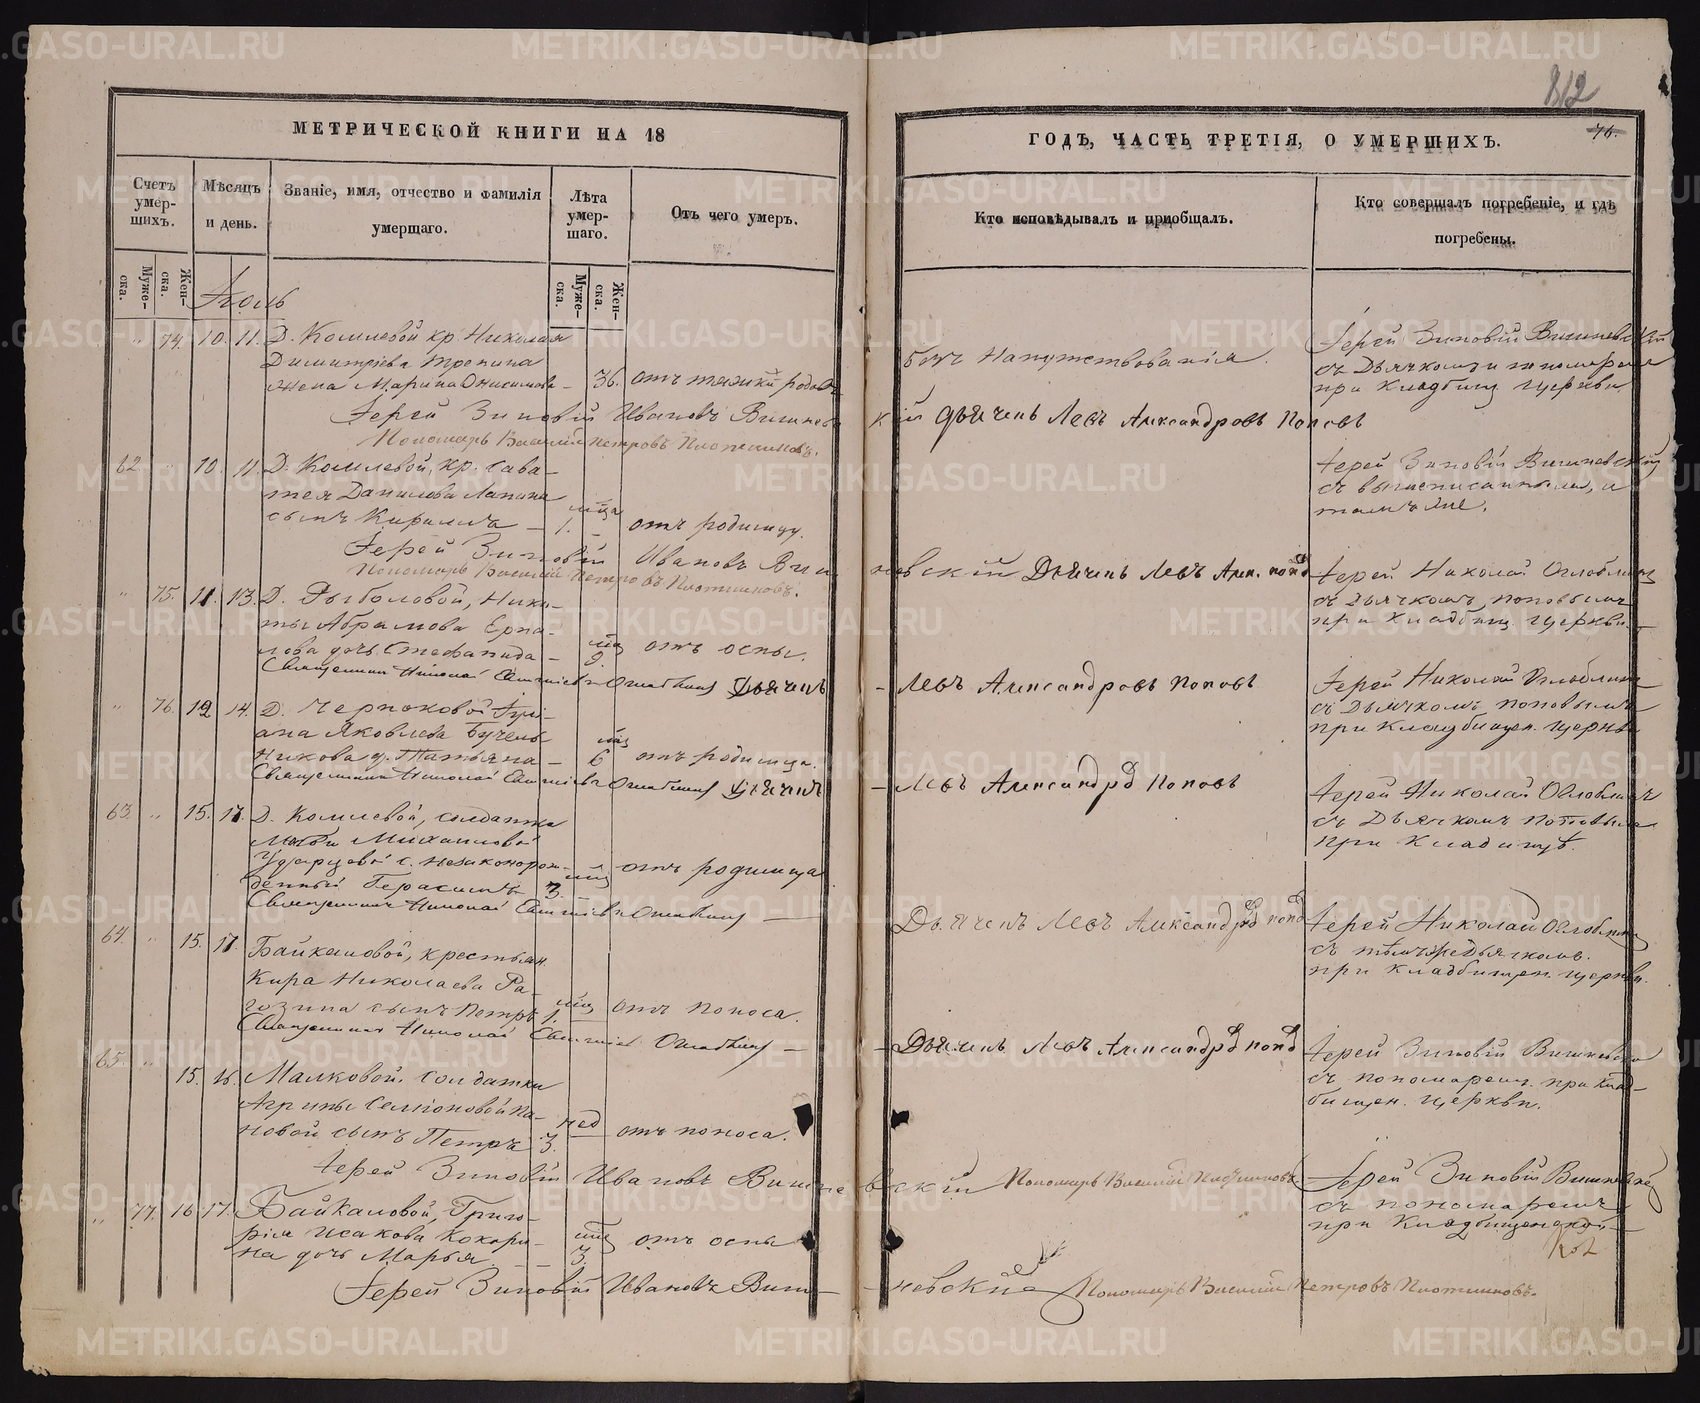 812
76.
МЕТРИЧЕСКОЙ КНИГИ НА 18
ГОДЪ, ЧАСТЬ ТРЕТІЯ, О УМЕРШИХЪ.
Счетъ умер-шихъ.
Мѣсяцъ и день.
Званіе, имя, отчество и фамилія умершаго.
Лѣта умер-шаго.
Отъ чего умеръ.
Кто исповѣдывалъ и пріобщалъ.
Кто совершалъ погребеніе, и гдѣ погребены.
Муже-ска.
Жен-ска.
Муже-ска.
Жен-ска.
Іюль
" 74. 10. 11. Д. Комлевой кр. Николая
Димитріева Тропина
жена Марина Онисимова – 36. отъ тяжкихъ родовъ
безъ напутствованія.
Іерей Зиновій Вишневскій
съ Дьячкомъ и пономаремъ
при Кладбищ. церкви.
Іерей Зиновій Ивановъ Вишневскій Дьячекъ Левъ Александровъ Поповъ
Пономарь Василій Петровъ Плотниковъ.
62. " 10. 11. Д. Комлевой, кр. Сава-
тея Данилова Лапина
сынъ Кирилъ – 1. отъ родимцу.
Іерей Зиновій Вишневскій
съ вышеписанными, и
тамъ же.
Іерей Зиновій Ивановъ Вишневскій Дьячекъ Левъ Алек. Попов
Пономарь Василій Петровъ Плотниковъ.
" 75. 11. 13. Д. Рыболовой, Ники-
ты Абрамова
дочь Стефанида – отъ оспы.
Іерей Николай Оглоблинъ
съ Дьячкомъ Поповымъ
при Кладбищ. церкви.
Священникъ Николай Оглоблинъ Дьячекъ – Левъ Александровъ Поповъ
" 76. 12 14. Д. Черноковой
Яковлева
д. Татьяна – мц 6 отъ родимца.
Іерей Николай Оглоблинъ
съ Дьячкомъ Поповымъ
при Кладбищен. церкви
Священникъ Николай Оглоблинъ Дьячекъ – Левъ Александров Поповъ
63. " 15. 17. Д. Комлевой, солдатки
Михаиловой
с. незаконорож-
денный Герасимъ 3. отъ родимца
Іерей Николай Оглоблинъ
съ Дьячкомъ Поповымъ
при Кладищѣ.
Священникъ Николай Оглоблинъ – Дьячекъ Левъ Александров Попов
64. " 15. 17. Байкаловой, крестьян.
Кира Николаева Ра-
гозина сынъ Петръ 1. мц отъ поноса.
Іерей Николай Оглоблинъ
съ тѣмъ же Дьячкомъ
при кладбищен. церкви.
Священникъ Николай Оглоблинъ – Дьячекъ Левъ Александров Попов
65. " 15. 16. Малковой. солдатки
Агрипы Семіоновой Па-
новой сынъ Петръ 3. нед отъ поноса.
Іерей Зиновій Вишневскій
съ пономаремъ при Клад-
бищен. церкви.
Іерей Зиновій Ивановъ Вишневскій Пономарь Василій Плотниковъ
" 77. 16 17. Байкаловой, Григо-
рія Исакова Кокори-
на дочь Марья. – мц 3. отъ оспы
Іерей Зиновій Вишневскій
съ пономаремъ
при Кладбищенской
Іерей Зиновій Ивановъ Виш – невскій Пономарь Василій Петровъ Плотниковъ.
METRIKI.GASO-URAL.RU